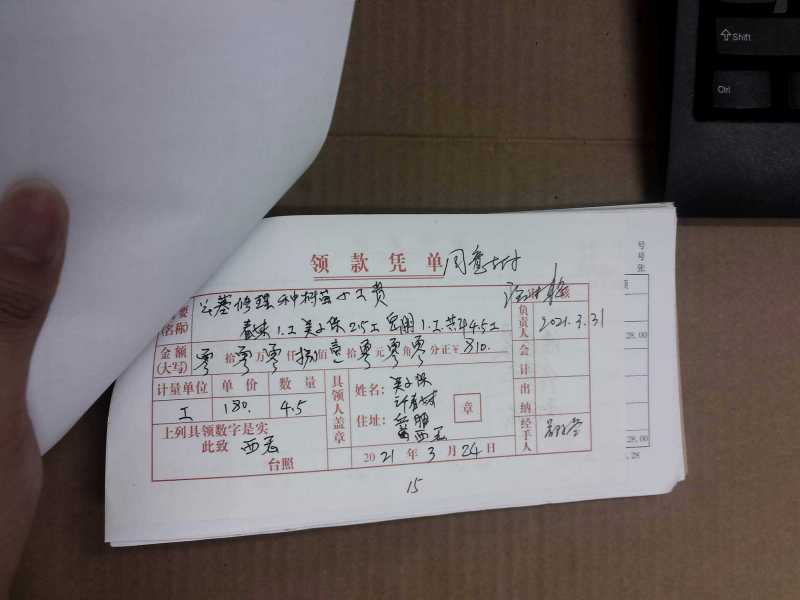 Shift
Ctrl
领款凭单 同意支付
号
号
张
要
(名称)
公墓修理种树苗小工费
春味1.工 吴小保2.5工 1.工 共4.5工
负责人
2021.3.31
金额
(大写)
零拾零万零仟捌佰壹拾零元零角零分正¥ 810.
会计
计量单位 单价 数量
工 180. 4.5
具领人盖章
姓名: 吴小保
住址:
章
出纳
经手人
上列具领数字是实
此致
台照
2021年3月24日
15
28.00
28.00
.28